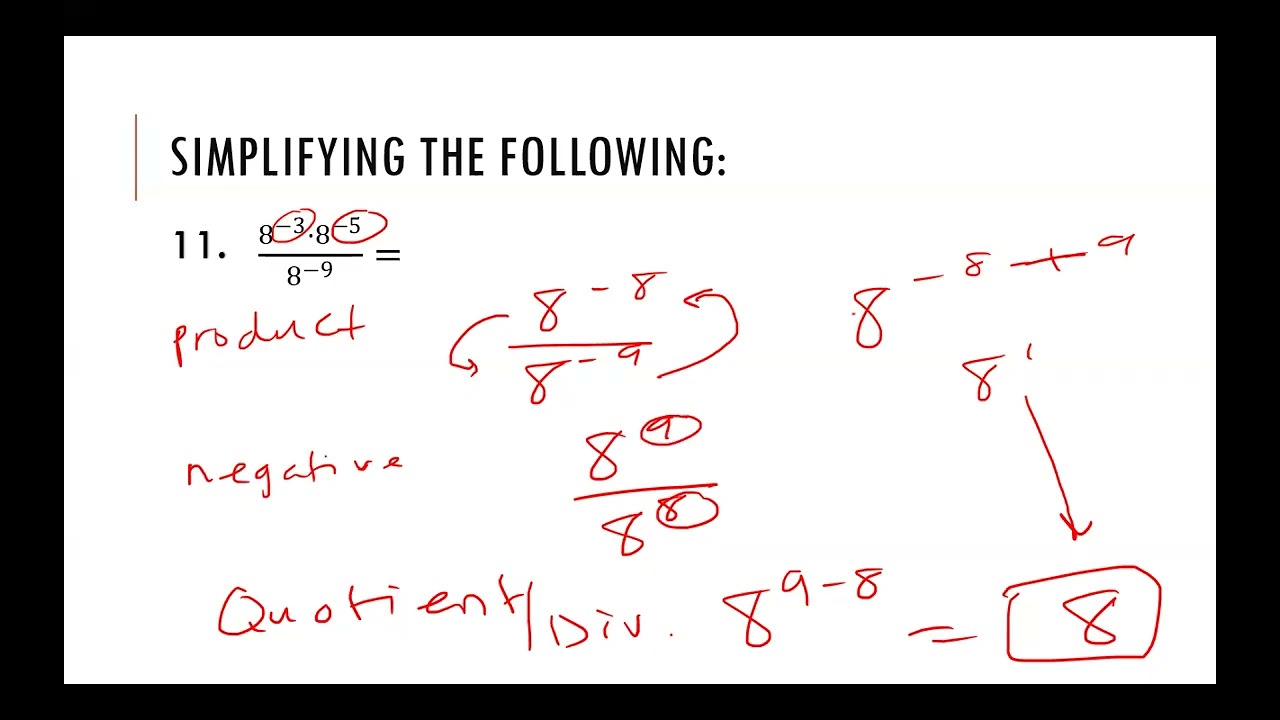 SIMPLIFYING THE FOLLOWING:
11. \frac{8^{-3}·8^{-5}}{8^{-9}} =
product
\frac{8^{-8}}{8^{-9}}
negative
\frac{8^{9}}{8^{8}}
Quotient/Div. 8^{9-8} = 8
8^{-8+9}
8^{1}